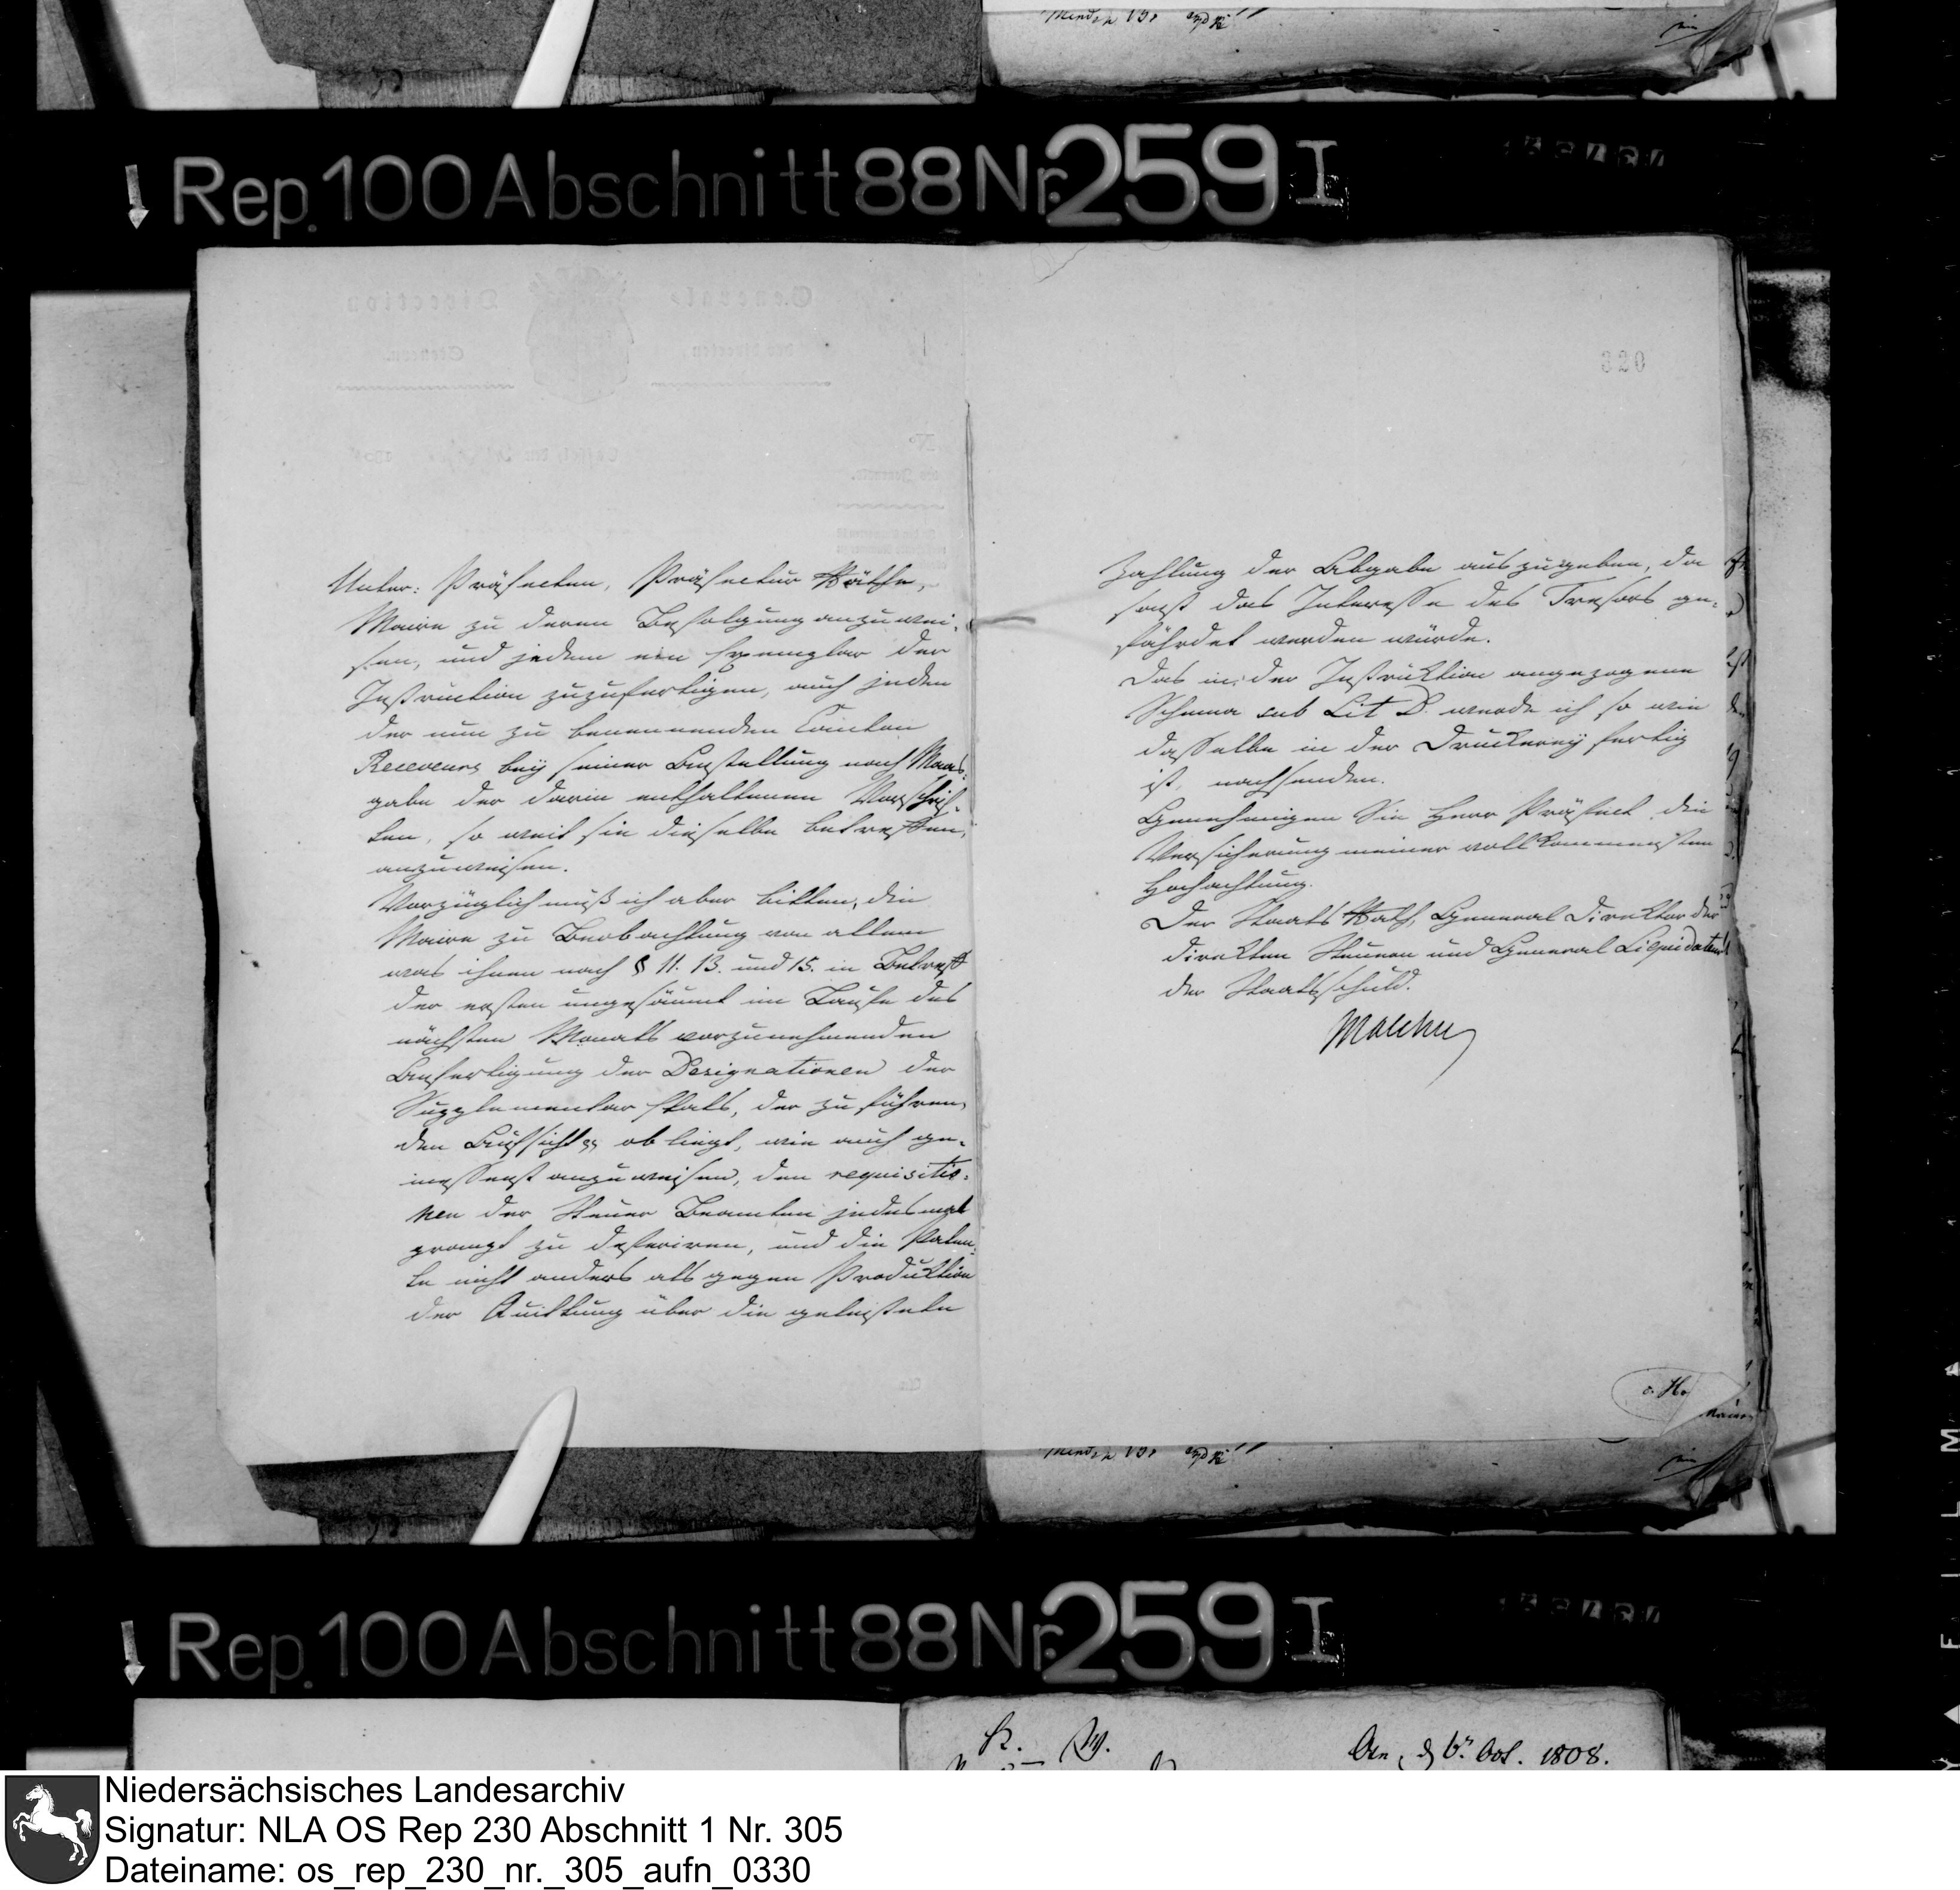 Rep. 100 Abschnitt 88 Nr. 259 I
320
Unter: Präfecten, Präfectur Räthe,
Maire zu deren Befolgung anzuwei-
sen, und jedem ein Exemplar der
Instruction zuzufertigen, auch jeden
der nun zu benennenden Canton
Receveurs bey seiner Anstellung nach Maas-
gabe der darin enthaltenen Vorschrif-
ten, so weit sie dieselbe betreffen,
anzuweisen.
Vorzüglich muß ich aber bitten, die
Maire zu Beobachtung von allem
was ihnen nach § 11. 13. und 15. in Betreff
der ersten ungesäumt im Laufe des
nächsten Monats vorzunehmenden
Anfertigung der Designationen der
Supplementar Etats, der zu führen-
den Aufsicht obliegt, wie auch ge-
messenst anzuweisen, den requisitio-
nen der Steuer Beamten jedesmal
prompt zu deferiren, und die Paten-
te nicht anders als gegen Produktion
der Quittung über die geleistete
Zahlung der Abgabe auszugeben, da
sonst das Interesse des Tresors ge-
fährdet werden würde.
Das in der Instruktion angezogene
Schema sub Lit D. werde ich so wie
dasselbe in der Druckerey fertig
ist, nachsenden.
Genehmigen Sie Herr Präfect die
Versicherung meiner vollkommensten
Hochachtung.
Der Staats Rath, General Direktor der
direkten Steuern und General Liquidateur
der Staatsschuld.
Malchus
Rep. 100 Abschnitt 88 Nr. 259 I
Oct. 1808.
Niedersächsisches Landesarchiv
Signatur: NLA OS Rep 230 Abschnitt 1 Nr. 305
Dateiname: os_rep_230_nr._305_aufn_0330